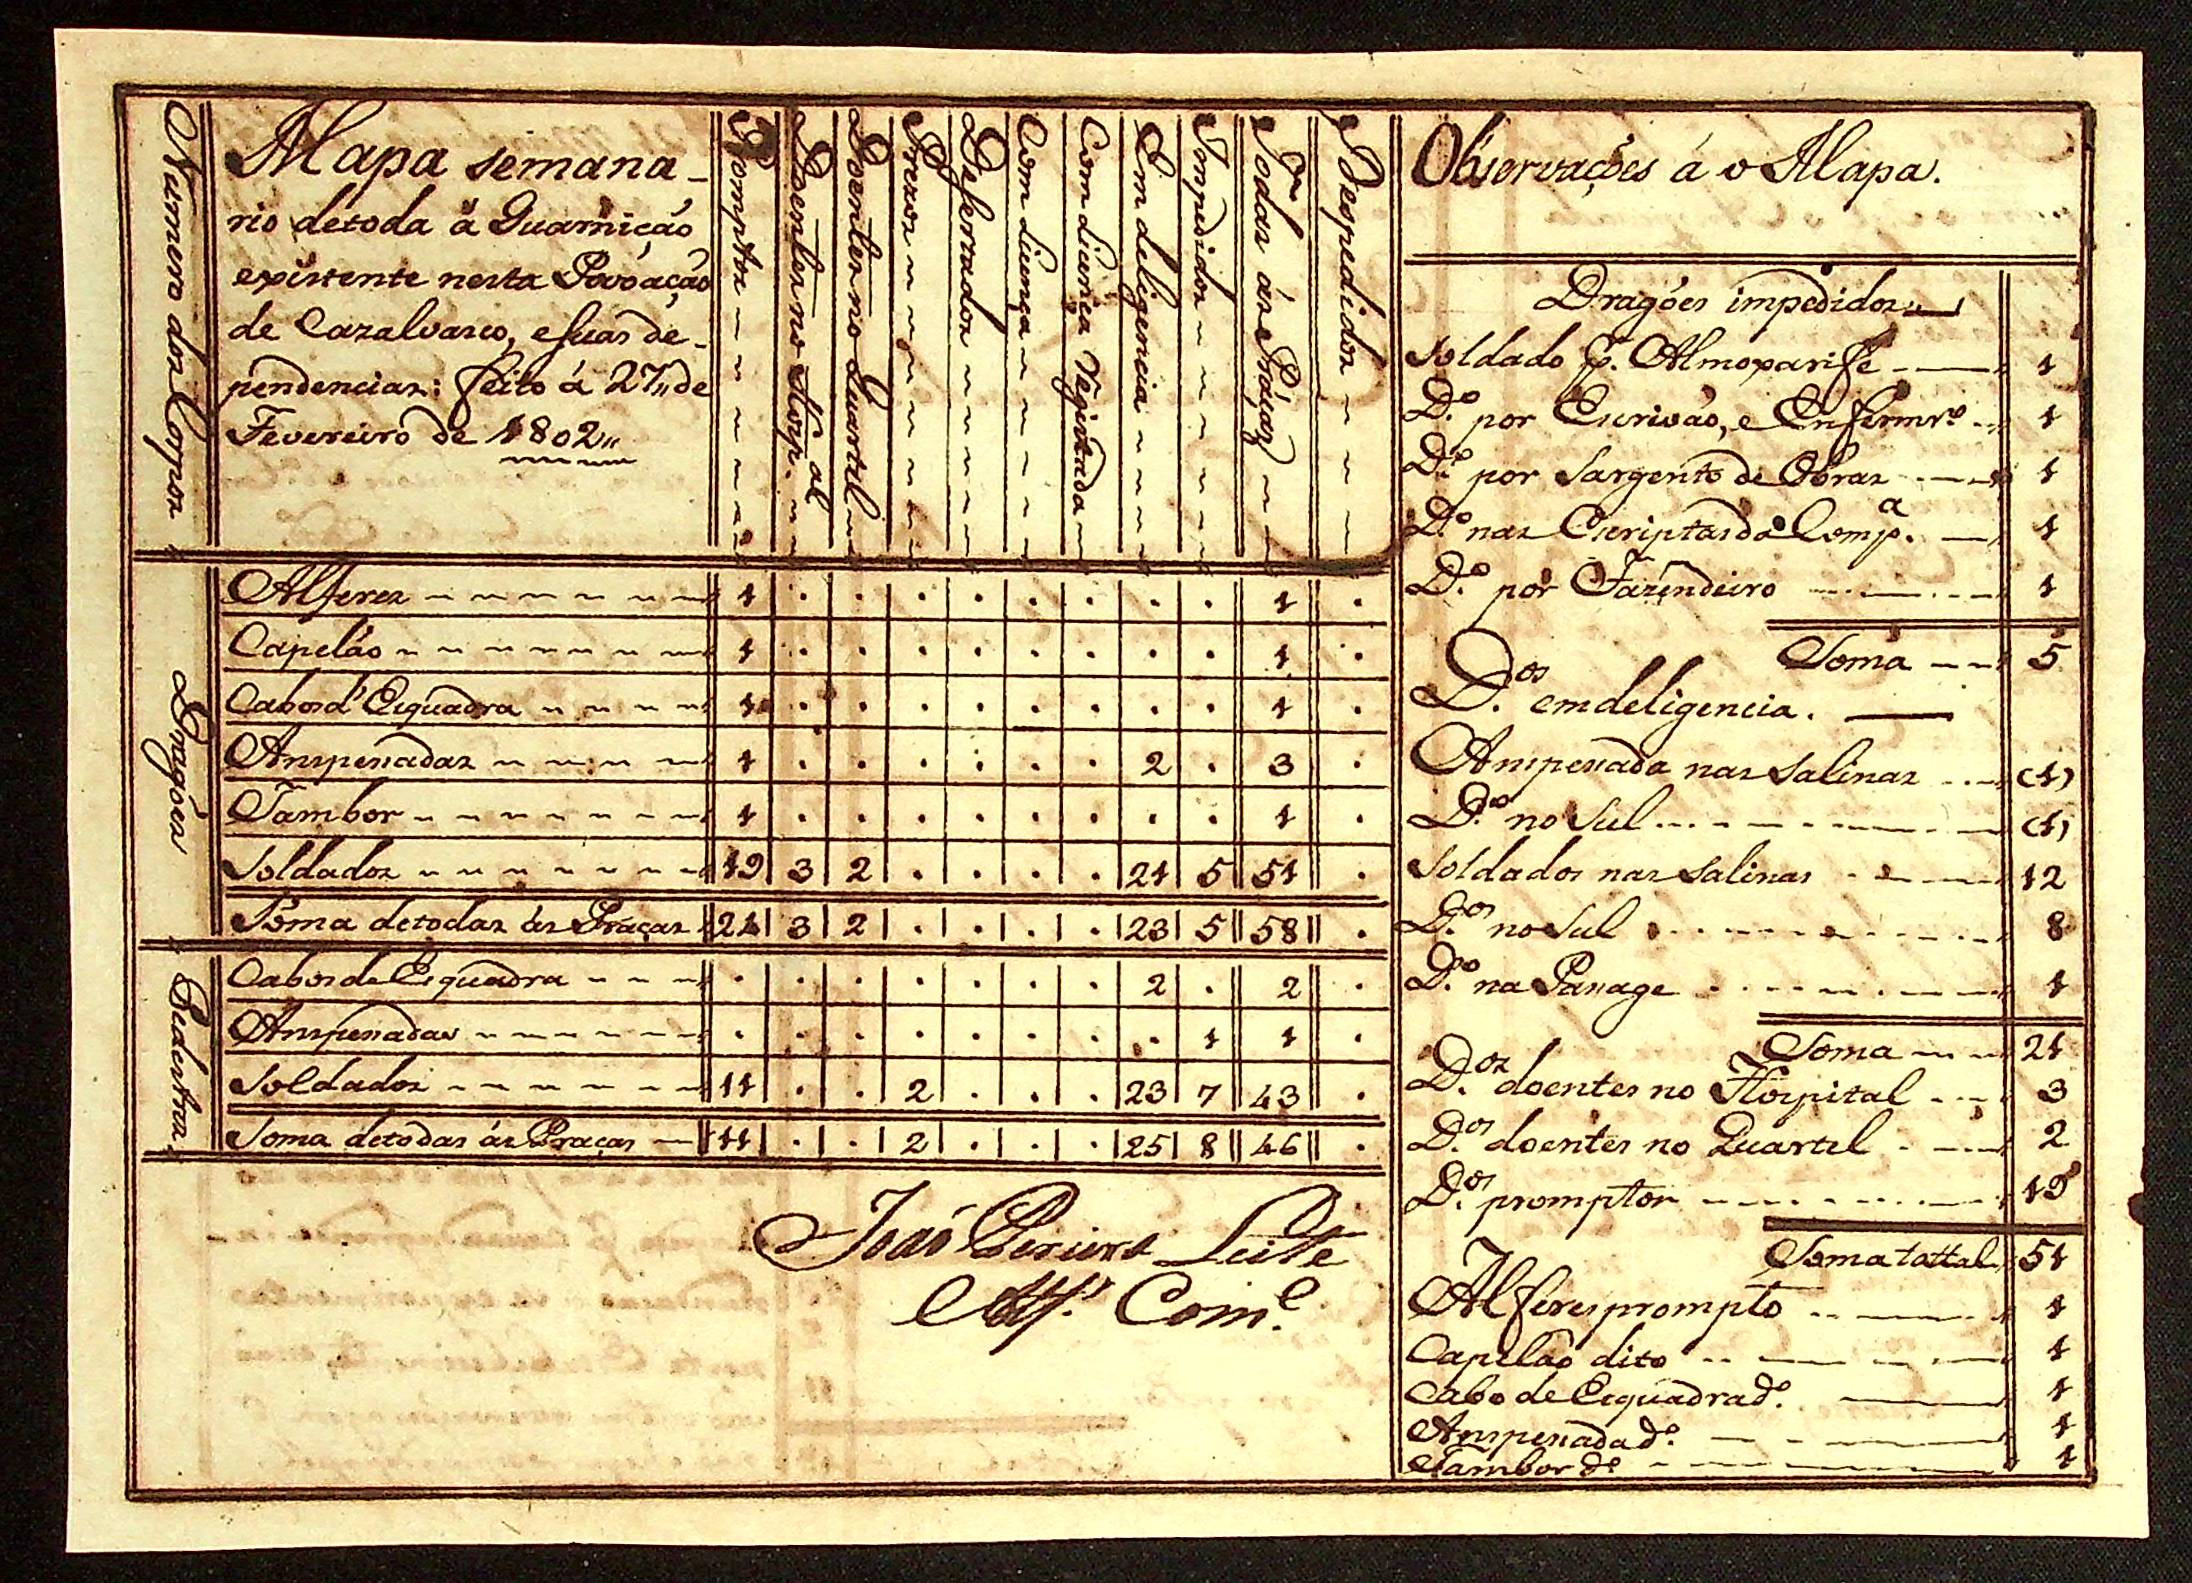 Numero dos Corpos
Mapa semana-
rio detoda á Guarnição
existente nesta Povoação
de Cazalvasco, e suas de-
pendencias: feito á 27,, de
Fevereiro de 1802,,
Promptos
Doentes no Hosp.al
Doentes no Quartel
Prezos
Dezertados
Com licença
Com licença Registada
Em deligencia
Impedidos
Todas ás Praças
Despedidos
Dragões
Alferes 1 . . . . . . . . 1 .
Capelão 1 . . . . . . . . 1 .
Cabos d'Esquadra 1 . . . . . . . . 1 .
Anspesadas 1 . . . . . . 2 . 3 .
Tambor 1 . . . . . . . . 1 .
Soldados 19 3 2 . . . . 21 5 51 .
Soma detodas ás Praças 24 3 2 . . . . 23 5 58 .
Pedestres
Cabos de Esquadra . . . . . . . 2 . 2 .
Anspesadas . . . . . . . . 1 1 .
Soldados 11 . . 2 . . . 23 7 43 .
Soma detodas ás Praças 11 . . 2 . . . 25 8 46 .
João Pereira Leite
Alf.s Com.e
Observações á o Mapa.
Dragões impedidos
Soldado p. Almoxarife 1
D.o por Escrivão, e Enfermr.o 1
D.o por Sargento de Obras 1
D.o nas Escriptas da Comp.a 1
D.o por Fazendeiro 1
Soma 5
D.os em deligencia.
Anspesada nas Salinas (1)
D.o no Sul (1)
Soldados nas Salinas 12
D.os no Sul 8
D.o na Passage 1
Soma 21
D.os doentes no Hospital 3
D.os doentes no Quartel 2
D.os promptos 19
Soma tottal 51
Alferes prompto 1
Capelão dito 1
Cabo de Esquadra d.o 1
Anspesada d.o 1
Tambor d.o 1